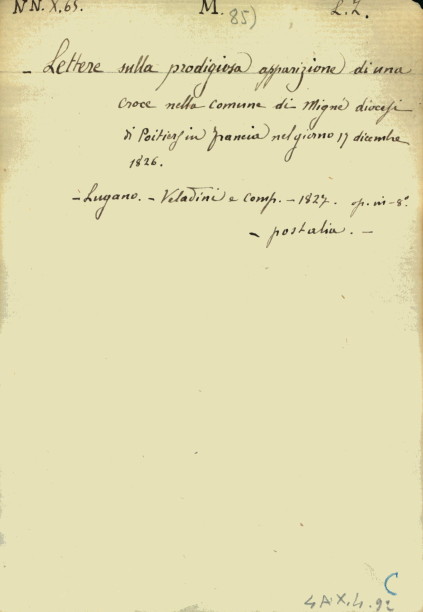 NN. X. 65. M. 85) L. Z.
- Lettere sulla prodigiosa apparizione di una
croce nella comune di Migné diocesi
di Poitiers in Francia nel giorno 17 dicembre
1826.
- Lugano. - Veladini e comp. - 1827. op. in-8°.
- postalia. -
C
4A.X.4.92